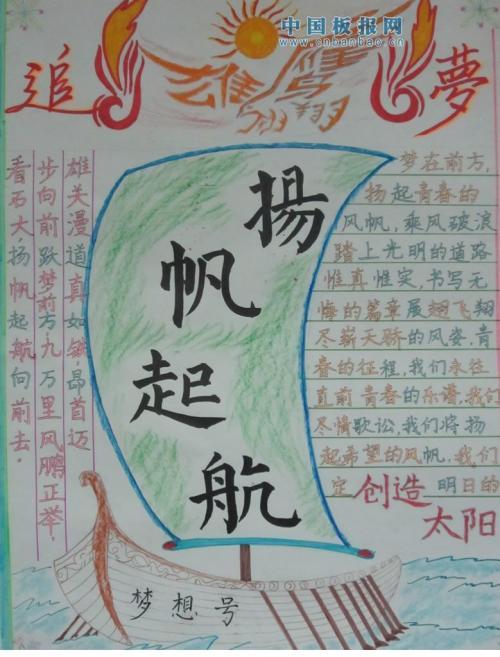 中国板报网
www.cnbanbao.cn
追
夢
揚
帆
起
航
雄关漫道真如铁,昂首迈
步向前跃,梦前方九万里风鹏正举!
看石大,扬帆起航向前去!
梦在前方,
扬起青春的
风帆,乘风破浪
踏上光明的道路
惟真惟实,书写无
悔的篇章展翅飞翔
尽崭天骄的风姿,青
春的征程,我们永往
直前青春的乐谱,我们
尽情歌讼,我们将扬
起希望的风帆,我们
定创造明日的
太阳
梦想号